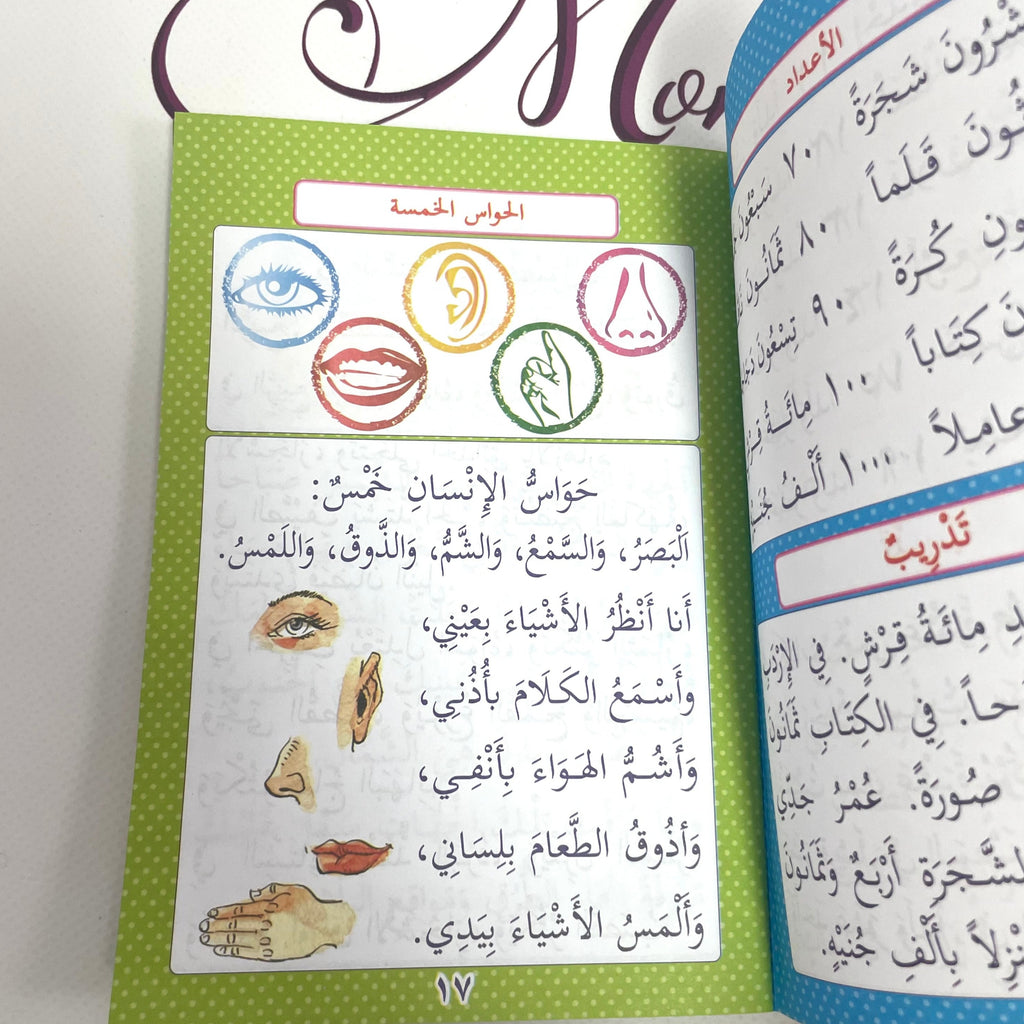 الحواس الخمسة
حَوَاسُّ الإِنْسَانِ خَمْسٌ:
اَلْبَصَرُ، وَالسَّمْعُ، وَالشَّمُّ، وَالذَّوقُ، وَاللَمْسُ.
أَنا أَنْظُرُ الأَشْيَاءَ بِعَيْنِي،
وأَسْمَعُ الكَلَامَ بأُذُنِي،
وَأَشُمُّ الهَوَاءَ بِأَنْفِي،
وَأذُوقُ الطَّعَامَ بِلِسَانِي،
وَأَلْمَسُ الأَشْيَاءَ بِيَدِي.
١٧
الأعداد
شَجَرَةً
٧٠ سَبْعُونَ
قَلَماً
٨٠ ثَمَانُونَ
كُرَةً
٩٠ تِسْعُونَ
كِتَاباً
١٠٠ مِائَةُ
عامِلاً
١٠٠٠ أَلْفُ
تَدْرِيبٌ
مِائَةُ قِرْشٍ. فِي
فِي الكِتَابِ ثَمَانُونَ
صُورَةً. عُمْرُ جَدِّي
أَرْبَعٌ وَثَمَانُونَ
بِأَلْفِ جُنَيْهٍ.